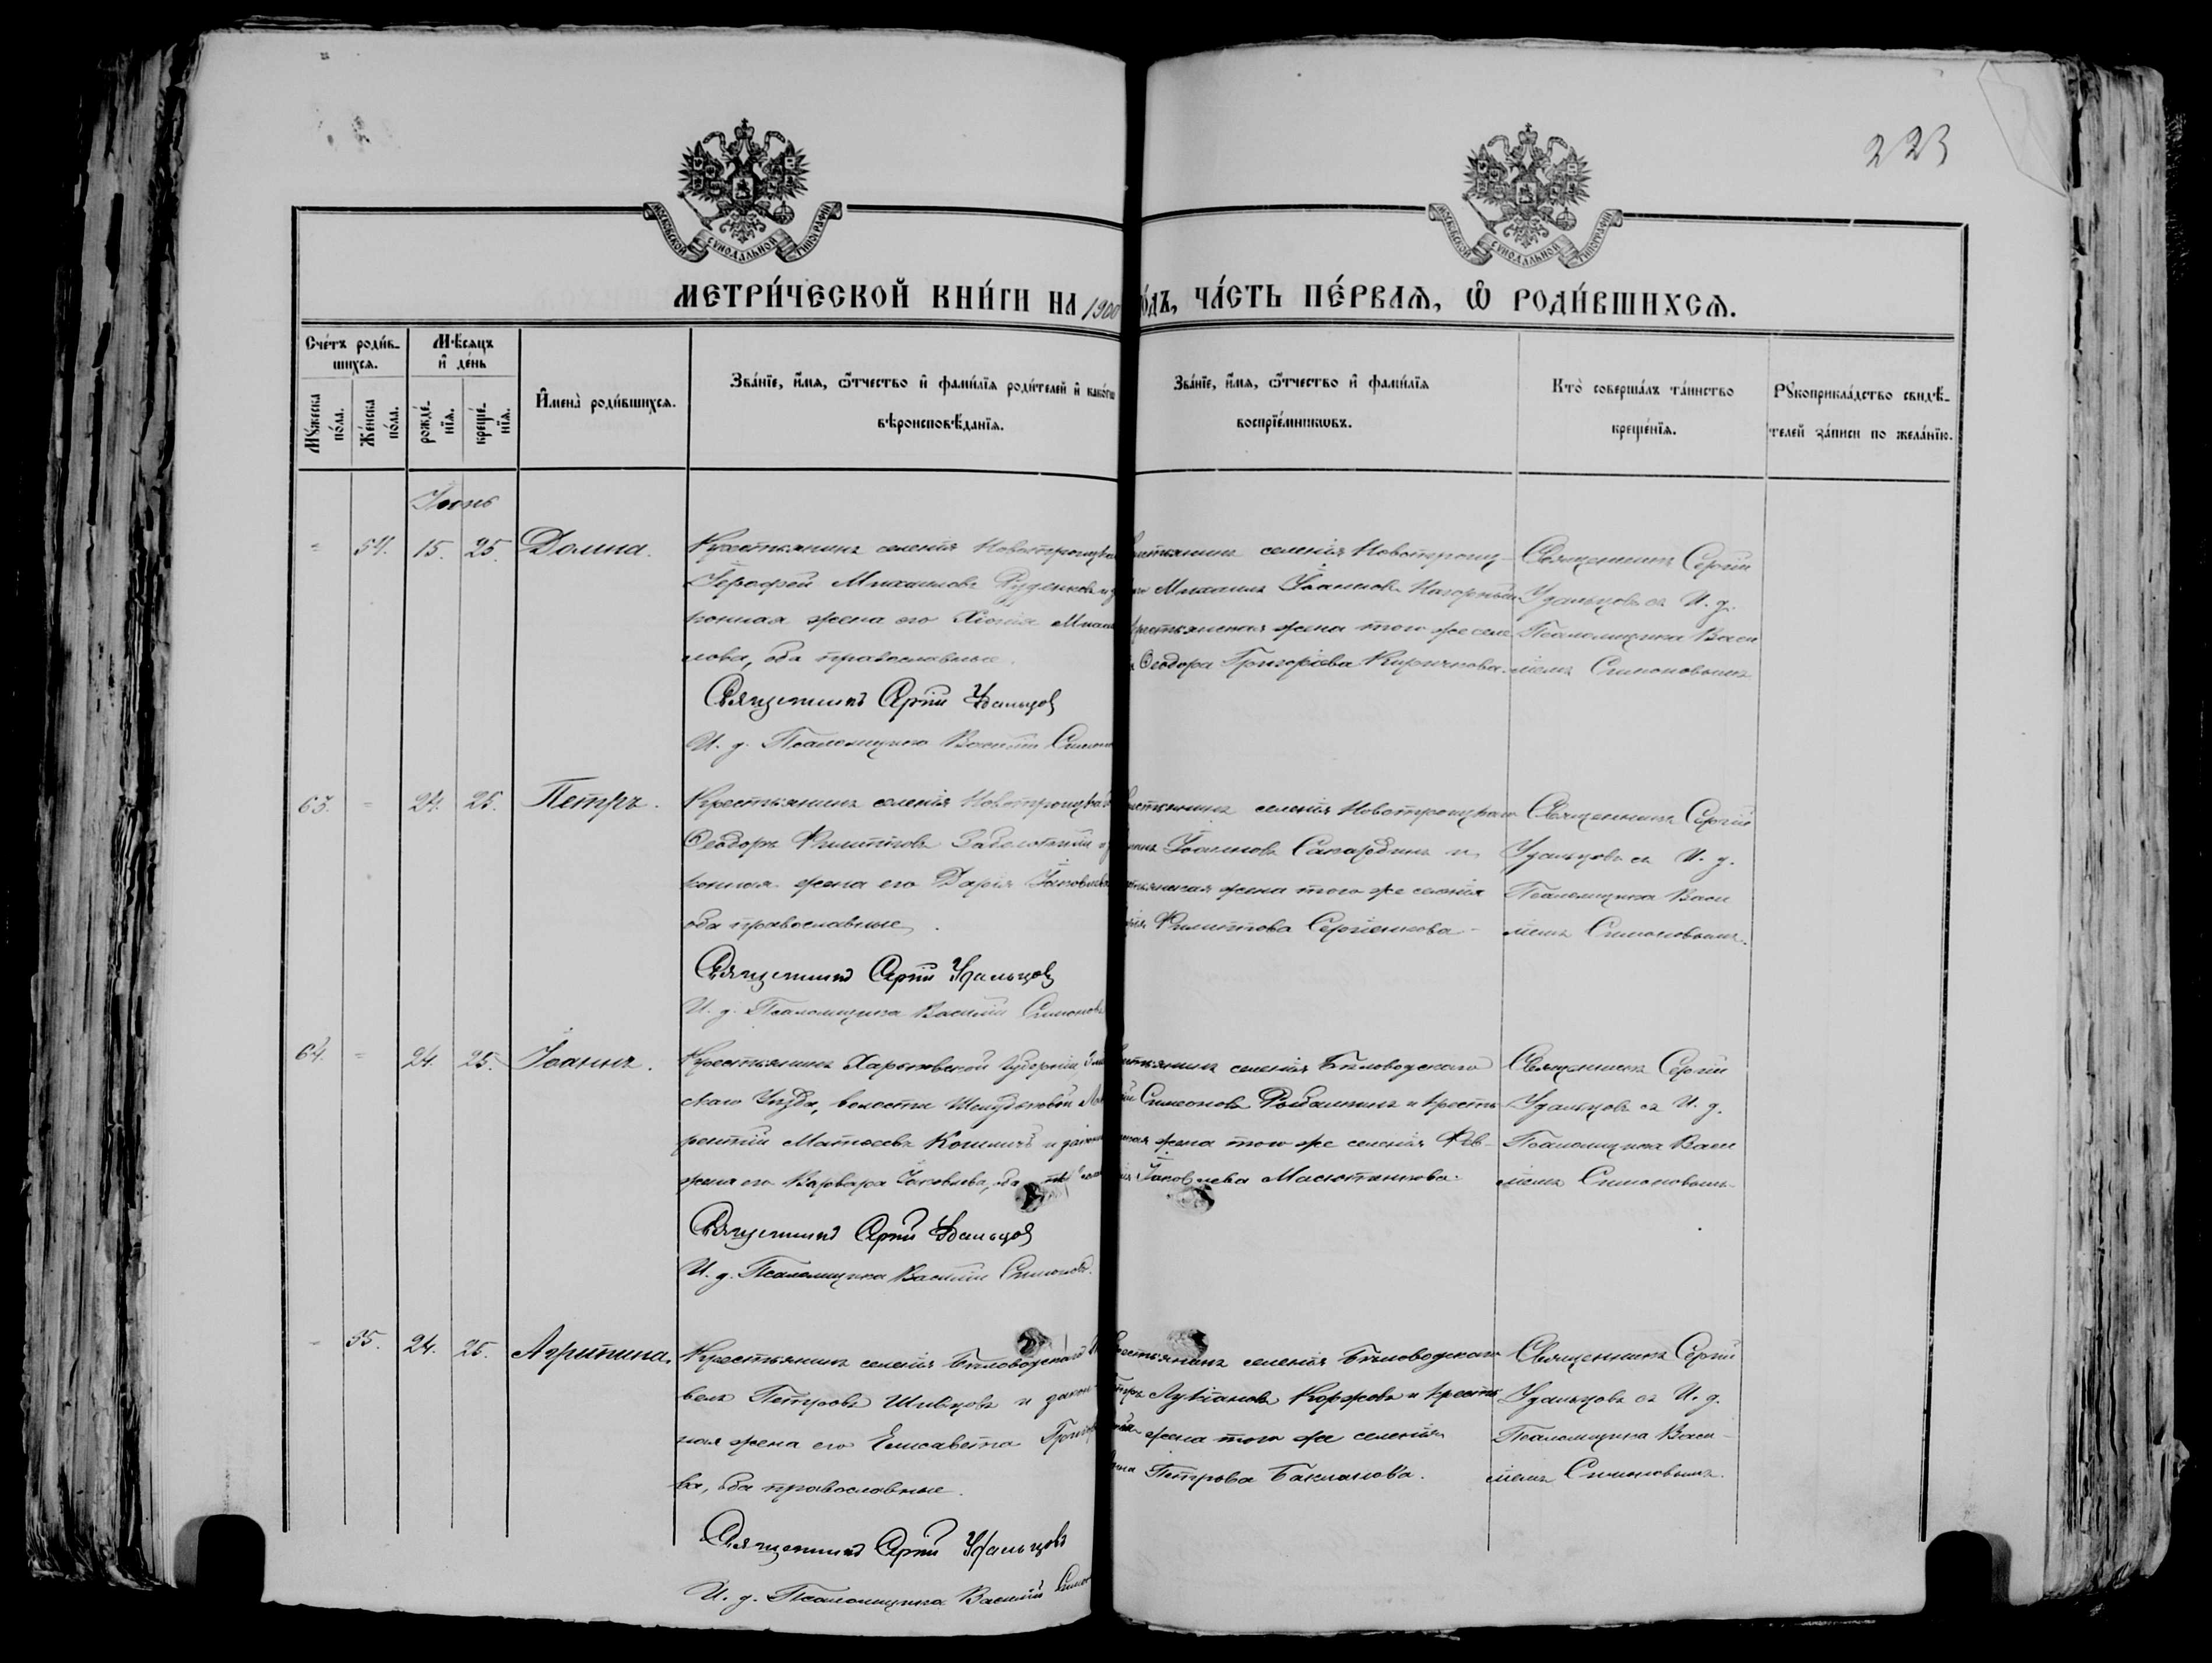 223
МОСКОВСКОЙ СѴНОДАЛЬНОЙ ТИПОГРАФІИ
МОСКОВСКОЙ СѴНОДАЛЬНОЙ ТИПОГРАФІИ
МЕТРИ́ЧЕСКОЙ КНИ́ГИ НА 1900 ГО́ДЪ, ЧА́СТЬ ПЕ́РВАѦ, Ѡ РОДИ́ВШИХСѦ.
Сче́тъ роди́в-
шихсѧ.
Мѣсѧцъ
и де́нь
Мꙋ́жеска
по́ла.
Же́нска
по́ла.
рожде́-
нїѧ.
креще́-
нїѧ.
Имена̀ роди́вшихсѧ.
Зва́нїе, и́мѧ, ѻ́тчество и фами́лїѧ роди́телей и како́гѡ
вѣроисповѣ́данїѧ.
Зва́нїе, и́мѧ, ѻ́тчество и фами́лїѧ
воспрїе́мникѡвъ.
Кто̀ соверша́лъ та́инство
креще́нїѧ.
Рꙋкоприкла́дство свидѣ́-
телей за́писи по жела́нїю.
Іюнь
54. 15. 25. Домна.
Крестьянинъ селенія Новотроицкаго
Іерофей Михаиловъ Руденковъ и за
конная жена его Хіонія Михаи
лова, оба православные.
Священникъ Сергій Удальцовъ
И. д. Псаломщика Василій Симонов
Крестьянинъ селенія Новотроиц-
каго Михаилъ Іоанновъ Нагорный
крестьянская жена того же селе
Ѳеодора Григоріева Киричкова.
Священникъ Сергій
Удальцовъ съ И. д.
Псаломщика Васи
ліемъ Симоновымъ
63. 24. 25. Петръ.
Крестьянинъ селенія Новотроицкаго
Ѳеодоръ Филипповъ Заболотній и за
конная жена его Дарія Іаковлева
оба православные.
Священникъ Сергій Удальцовъ
И. д. Псаломщика Василій Симоновъ
крестьянинъ селенія Новотроицкаго
Іоанновъ и
крестьянская жена того же селенія
Филиппова Сергіенкова
Священникъ Сергій
Удальцовъ съ И. д.
Псаломщика Васи
ліемъ Симоновымъ.
64. 24. 25. Іоаннъ.
Крестьянинъ Харьковской Губерніи, Зміев
скаго Уѣзда, волости Шелудьковой Лав
рентій Матѳеевъ и законная
жена его Варвара Іаковлева, оба
Священникъ Сергій Удальцовъ
И. д. Псаломщика Василій Симоновъ.
крестьянинъ селенія Бѣловодскаго
Симеоновъ Рыбалкинъ и кресть
янская жена того же селенія Ев-
Іаковлева Масютенкова.
Священникъ Сергій
Удальцовъ съ И. д.
Псаломщика Васи
ліемъ Симоновымъ
55. 24. 25. Агрипина.
Крестьянинъ селенія Бѣловодскаго Па
велъ Петровъ Шивцовъ и закон-
ная жена его Елисавета Григорье
ва, оба православные.
Священникъ Сергій Удальцовъ
И. д. Псаломщика Василій Симо
Крестьянинъ селенія Бѣловодскаго
Петръ Лукіановъ Коржовъ и кресть
жена того же селенія
Петрова Бакланова.
Священникъ Сергій
Удальцовъ съ И. д.
Псаломщика Васи-
ліемъ Симоновымъ.